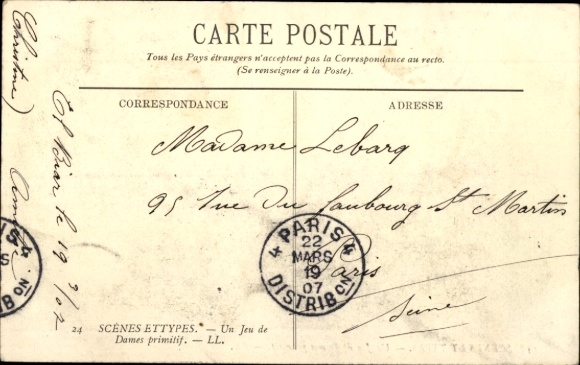 CARTE POSTALE
Tous les Pays étrangers n'acceptent pas la Correspondance au recto.
(Se renseigner à la Poste).
CORRESPONDANCE
ADRESSE
Madame Lebarq
95 Rue du Faubourg St Martin
Paris
Seine
PARIS 4
4
22
MARS
19
07
DISTRIBON
24 SCÈNES ETTYPES. — Un Jeu de
Dames primitif. — LL.
El Biar le 19
Christine